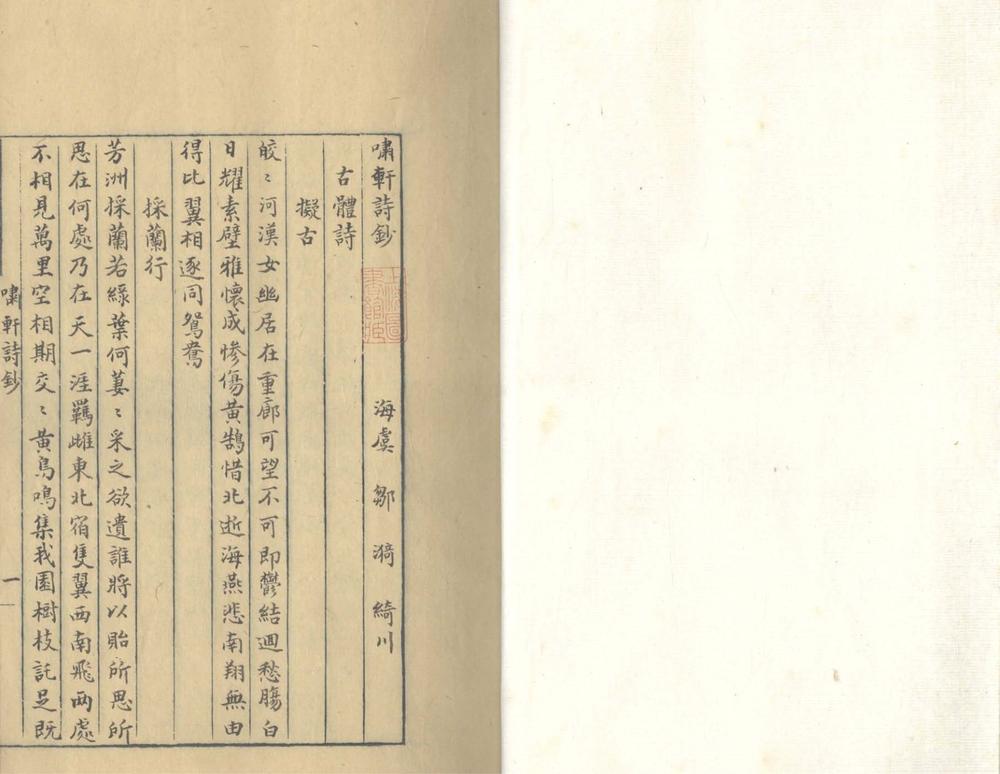 嘯軒詩鈔 海虞 鄒漪 綺川
古體詩
擬古
皎〻河漢女幽居在重廊可望不可即鬱結迴愁腸白
日耀素壁雅懷成慘傷黃鵠惜北逝海燕悲南翔無由
得比翼相逐同鴛鴦
採蘭行
芳洲採蘭若綠葉何萋〻采之欲遺誰將以貽所思所
思在何處乃在天一涯羈雌東北宿隻翼西南飛兩處
不相見萬里空相期交〻黃鳥鳴集我園樹枝託足既
嘯軒詩鈔 一